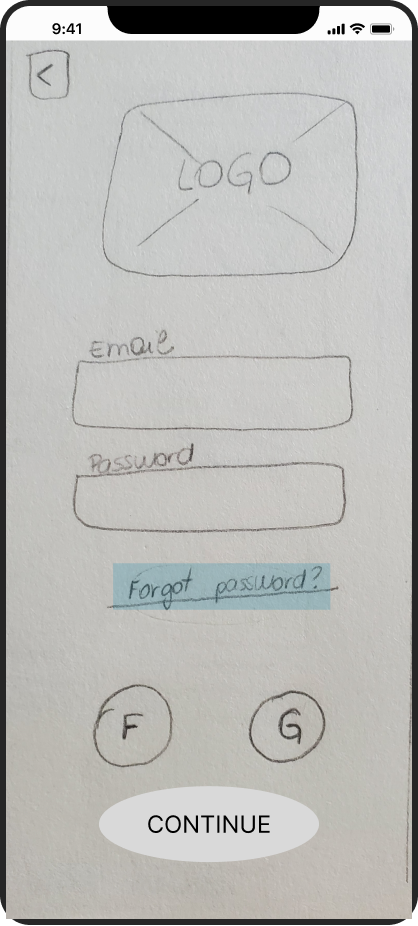 9:41
<
LOGO
Email
Password
Forgot password?
F G
CONTINUE